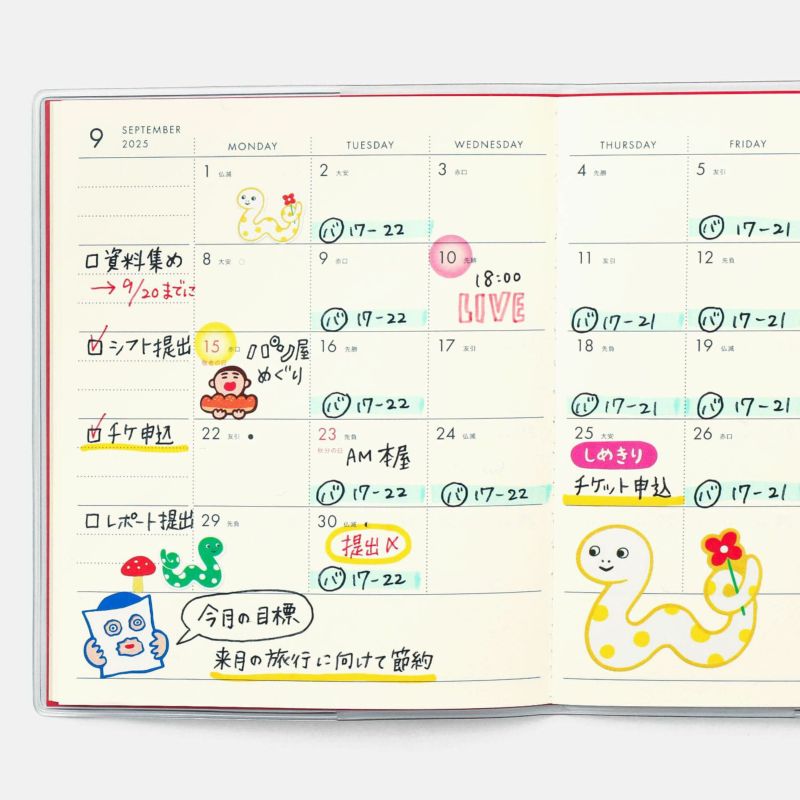 9 SEPTEMBER
2025
MONDAY TUESDAY WEDNESDAY THURSDAY FRIDAY
1 仏滅 2 大安 3 赤口 4 先勝 5 友引
バ 17-22 バ 17-21
□資料集め
→9/20までに
8 大安 9 赤口 10 先勝 11 友引 12 先負
18:00
LIVE
バ 17-22 バ 17-21 バ 17-21
シフト提出
15 赤口 16 先勝 17 友引 18 先負 19 仏滅
敬老の日
パン屋
めぐり
バ 17-22 バ 17-21 バ 17-21
チケ申込
22 友引 23 先負 24 仏滅 25 大安 26 赤口
秋分の日
AM 本屋
しめきり
チケット申込
バ 17-22 バ 17-22 バ 17-21
□レポート提出
29 先負 30 仏滅
提出〆
バ 17-22
今月の目標
来月の旅行に向けて節約